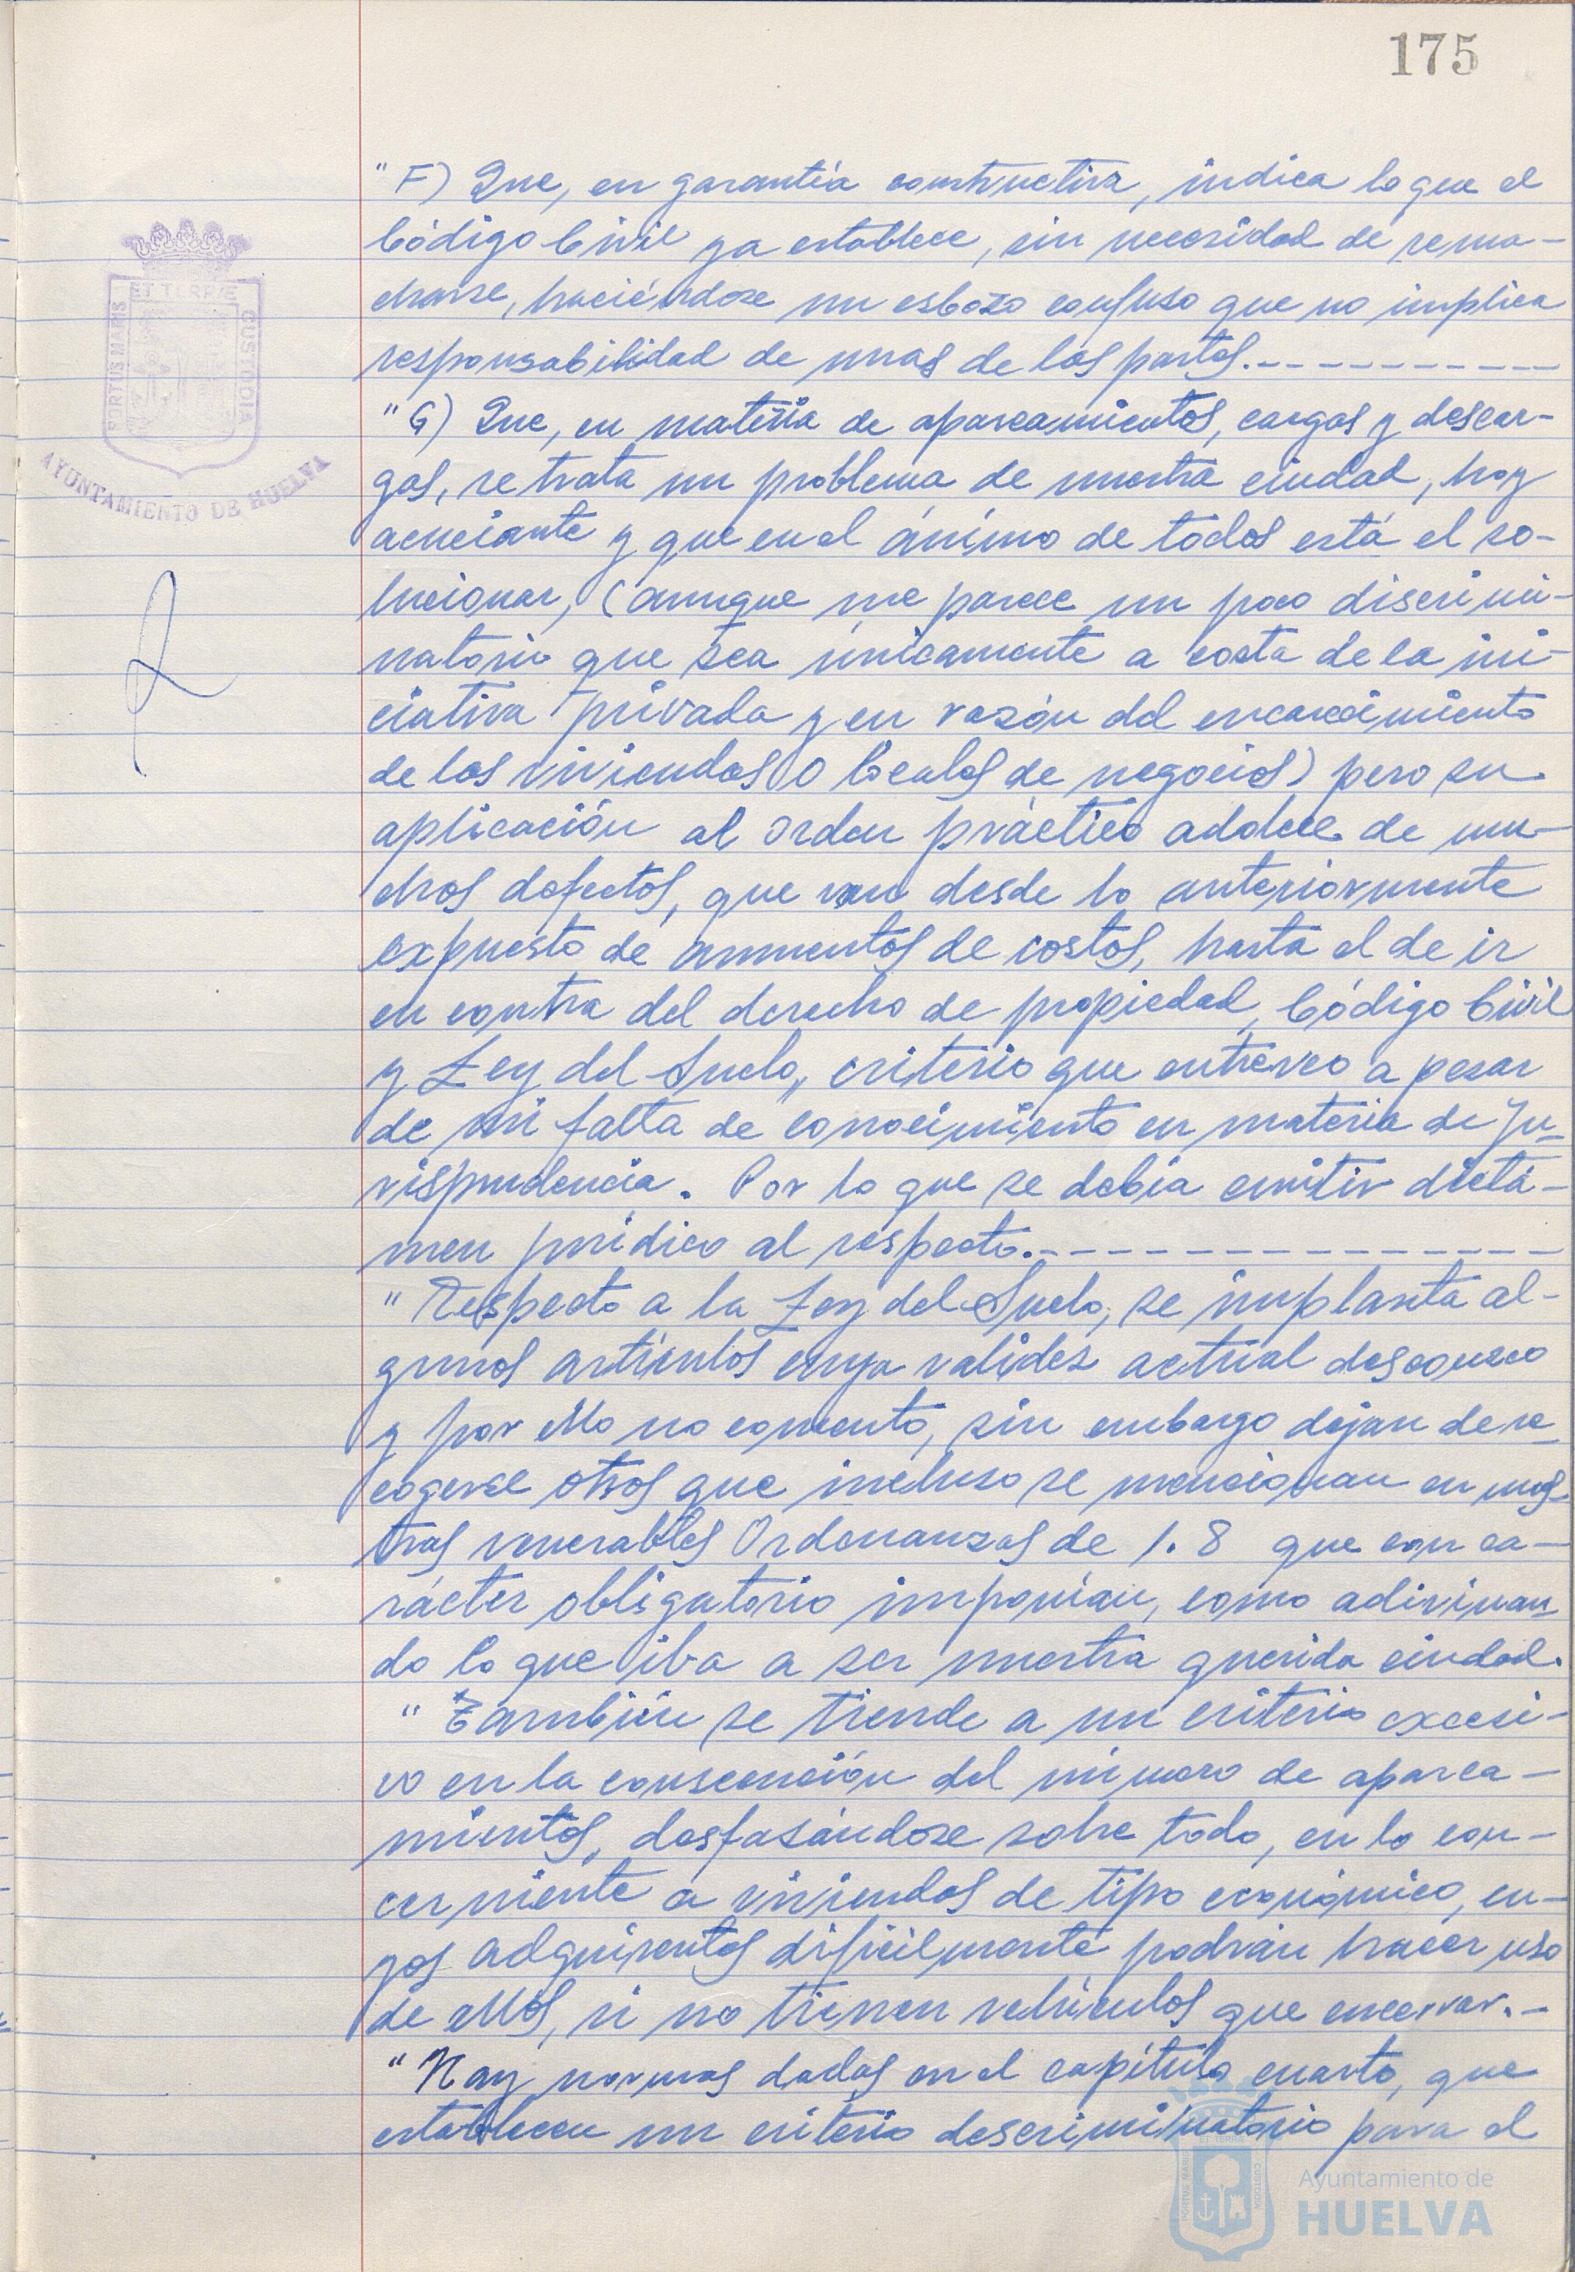 175
"F) Que, en garantía constructiva, indica lo que el
Código Civil ya establece, sin necesidad de rema-
charse, haciéndose un esbozo confuso que no implica
responsabilidad de unas de las partes.-----------
"G) Que, en materia de aparcamientos, cargas y descar-
gas, se trata un problema de nuestra ciudad, hoy
acuciante y que en el ánimo de todos está el so-
lucionar, (aunque me parece un poco discrimi-
natorio que sea únicamente a costa de la ini-
ciativa privada y en razón del encarecimiento
de las viviendas o locales de negocios) pero su
aplicación al orden práctico adolece de mu-
chos defectos, que van desde lo anteriormente
expuesto de aumentos de costos, hasta el de ir
en contra del derecho de propiedad, Código Civil
y Ley del Suelo, criterio que entreveo a pesar
de mi falta de conocimiento en materia de Ju-
risprudencia. Por lo que se debía emitir dictá-
men jurídico al respecto.---------------
"Respecto a la Ley del Suelo, se implanta al-
gunos artículos cuya validez actual desconozco
y por ello no comento, sin embargo dejan de re-
cogerse otros que incluso se mencionan en nues-
tras venerables Ordenanzas de 1.8 que con ca-
rácter obligatorio imponían, como adivinan-
do lo que iba a ser nuestra querida ciudad.
"También se tiende a un criterio excesi-
vo en la consecución del número de aparca-
mientos, desfasándose sobre todo, en lo con-
cerniente a viviendas de tipo económico, cu-
yos adquirentes difícilmente podrán hacer uso
de ellos, si no tienen vehículos que encerrar.-
"Hay normas dadas en el capítulo cuarto, que
establecen un criterio descriminatorio para el
PORTUS MARIS
ET TERRÆ
CUSTODIA
AYUNTAMIENTO DE HUELVA
Ayuntamiento de
HUELVA